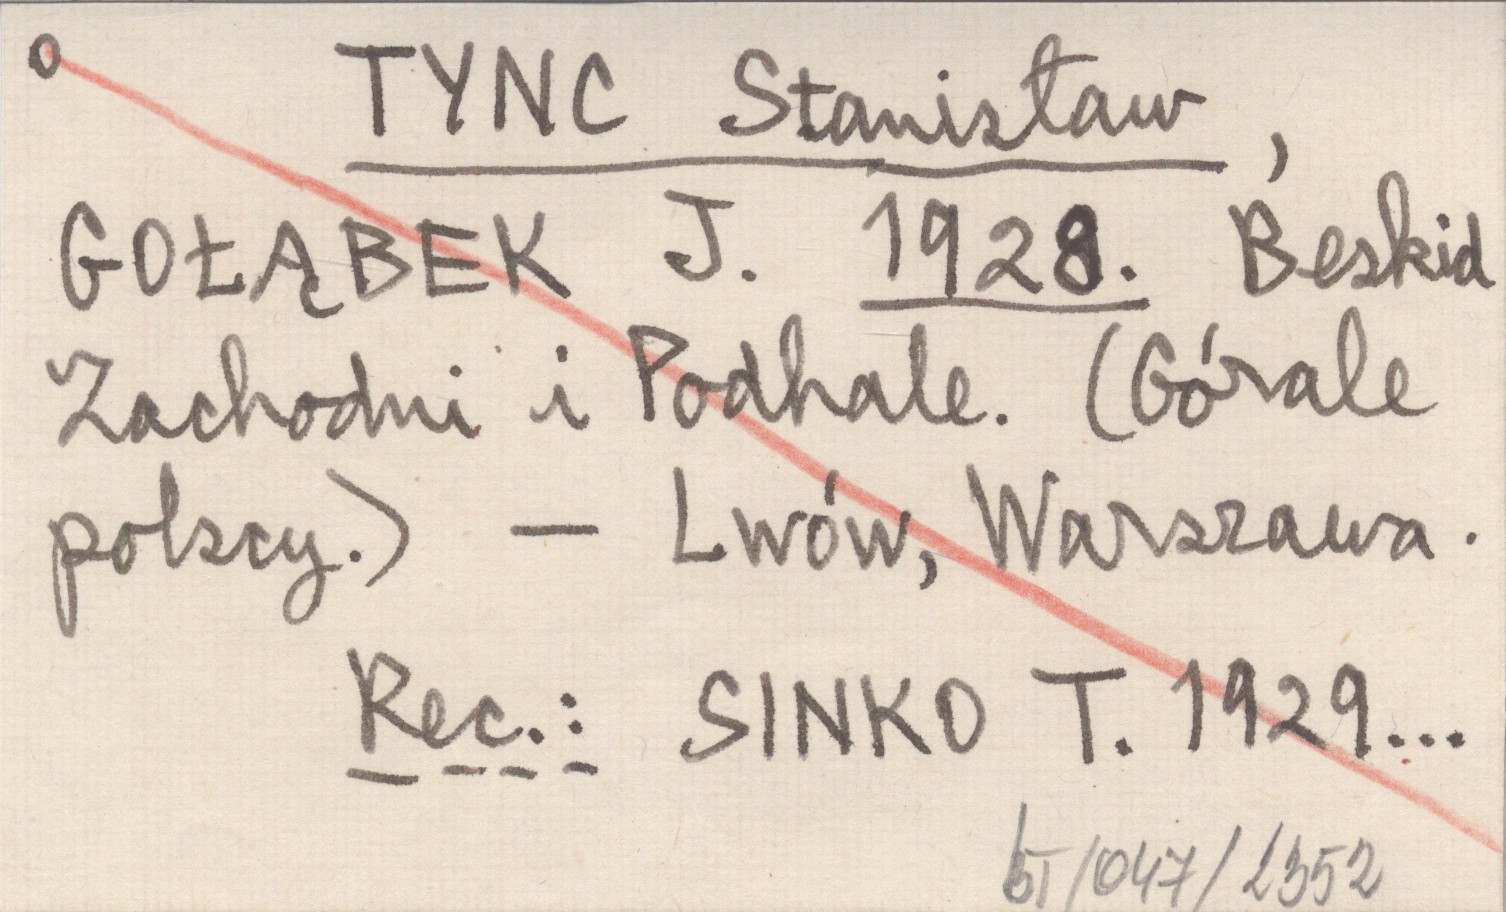 o TYNC Stanisław,
GOŁĄBEK J. 1928. Beskid
Zachodni i Podhale. (Górale
polscy.) — Lwów, Warszawa.
Rec.: SINKO T. 1929...
/047/2352